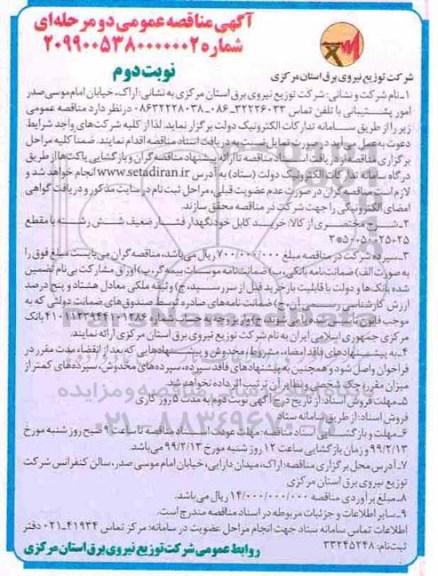 آگهی مناقصه عمومی دو مرحله‌ای
شماره ۲۰۹۹۰۰۵۳۸۰۰۰۰۰۰۲
نوبت دوم
شرکت توزیع نیروی برق استان مرکزی
۱-نام شرکت و نشانی: شرکت توزیع نیروی برق استان مرکزی به نشانی: اراک، خیابان امام موسی صدر
امور پشتیبانی با تلفن تماس ۳۲۲۲۶۰۳۳-۰۸۶ و ۰۸۶۳۲۲۲۸۰۳۸ در نظر دارد مناقصه عمومی
زیر را از طریق سامانه تدارکات الکترونیک دولت برگزار نماید. لذا از کلیه شرکت‌های واجد شرایط
دعوت به عمل می‌آید در صورت تمایل نسبت به دریافت اسناد مناقصه اقدام نمایند. ضمنا کلیه مراحل
برگزاری مناقصه از دریافت اسناد مناقصه تا ارائه پیشنهاد مناقصه‌گران و بازگشایی پاکت‌ها از طریق
درگاه سامانه تدارکات الکترونیک دولت (ستاد) به آدرس www.setadiran.ir انجام خواهد شد و
لازم است مناقصه‌گران در صورت عدم عضویت قبلی، مراحل ثبت نام در سایت مذکور و دریافت گواهی
امضای الکترونیکی را جهت شرکت در مناقصه محقق سازند.
۲-شرح مختصری از کالا: خرید کابل خودنگهدار فشار ضعیف شش رشته با مقطع
۳-سپرده شرکت در مناقصه مبلغ ۷۰۰/۰۰۰/۰۰۰ ریال می‌باشد، مناقصه‌گران می‌بایست مبلغ فوق را
به صورت الف) ضمانت‌نامه بانکی، ب) ضمانت‌نامه موسسات بیمه‌گر، پ) اوراق مشارکت بی‌نام تضمین
شده بانک‌ها و دولت با قابلیت بازخرید قبل از سررسید، ج) وثیقه ملکی معادل هفتاد و پنج درصد
ارزش کارشناسی ج) ضمانت نامه‌های صادره توسط صندوق‌های ضمانت دولتی که به
موجب قانون بانک
مرکزی جمهوری اسلامی ایران به نام شرکت توزیع نیروی برق استان مرکزی ارائه نمایند.
۴-به پیشنهادهای فاقد امضاء، مشروط، مخدوش و پیشنهادهایی که بعد از انقضاء مدت مقرر در
فراخوان واصل شود و همچنین به پیشنهادهای فاقد سپرده، سپرده‌های مخدوش، سپرده‌های کمتر از
میزان مقرر، چک شخصی و نظایر آن ترتیب اثر داده نخواهد شد.
۵-مهلت فروش اسناد: از تاریخ درج آگهی نوبت دوم به مدت ۵ روز کاری
فروش اسناد: از طریق سامانه ستاد
۶-مهلت و بازگشایی اسناد مناقصه: مهلت عودت اسناد مناقصه تا ساعت ۹ صبح روز شنبه مورخ
۹۹/۲/۱۳ و زمان بازگشایی ساعت ۱۲ روز شنبه مورخ ۹۹/۲/۱۳ می‌باشد.
۷-آدرس محل برگزاری مناقصه: اراک، میدان دارایی، خیابان امام موسی صدر، سالن کنفرانس شرکت
توزیع نیروی برق استان مرکزی
۸-مبلغ برآوردی مناقصه ۱۴/۰۰۰/۰۰۰/۰۰۰ ریال می‌باشد.
۹-سایر اطلاعات و جزئیات مربوطه در اسناد مناقصه مندرج است.
اطلاعات تماس سامانه ستاد جهت انجام مراحل عضویت در سامانه: مرکز تماس ۴۱۹۳۴-۰۲۱ دفتر
ثبت نام: ۳۳۲۴۵۲۴۸
روابط عمومی شرکت توزیع نیروی برق استان مرکزی